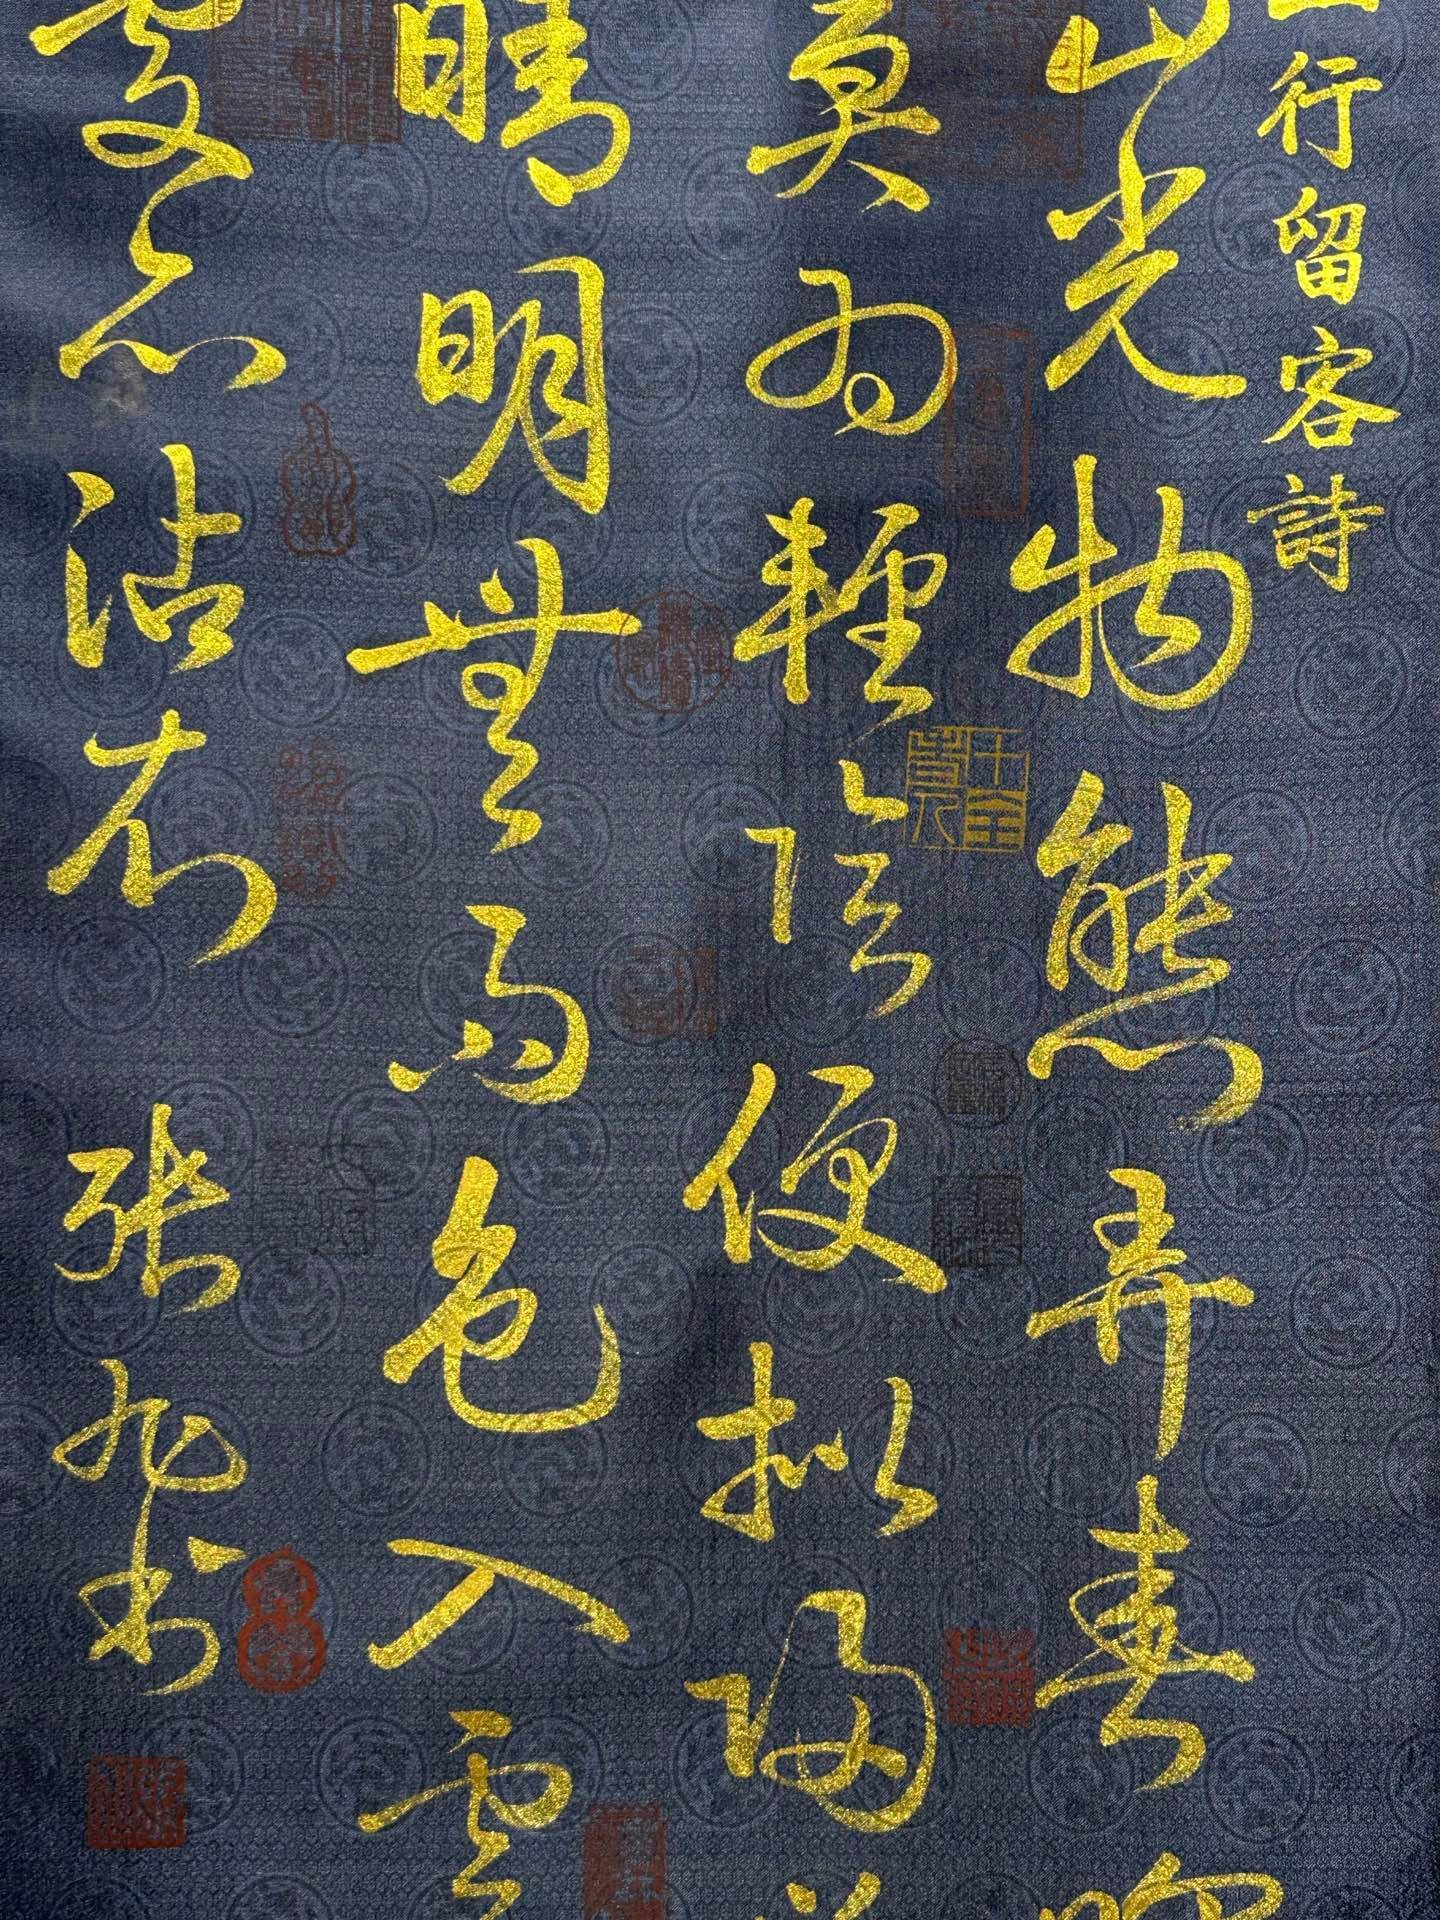 山行留客詩
山光物態弄春暉
莫為輕陰便擬歸
晴明無雨色入雲
處亦沾衣 張旭書